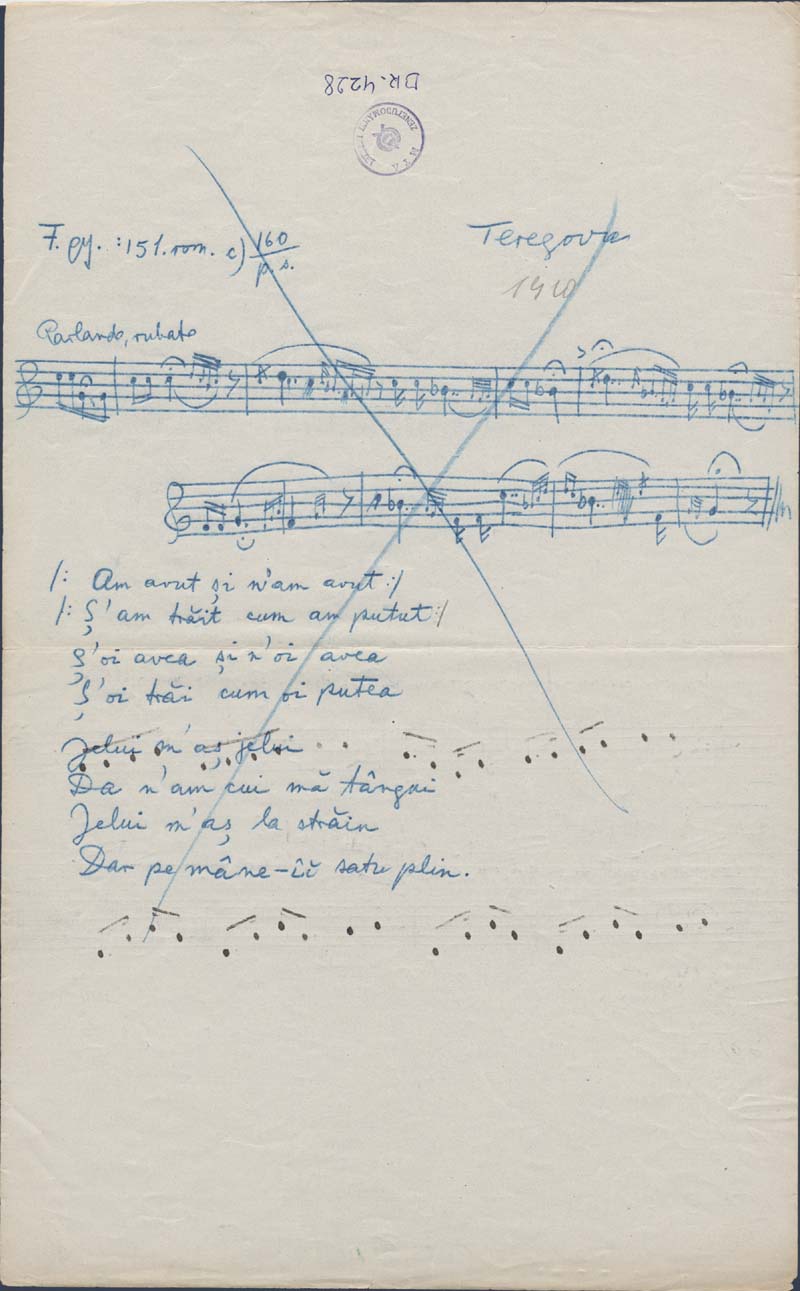 DR. 4228
ZENETUDOMÁNYI
M T A
F. gy. : 151. rom. c) 160
p. s.
Teregova
1910
Parlando, rubato
/: Am avut și n'am avut :/
/: Ș'am trăit cum am putut :/
Ș'oi avea și n'oi avea
Ș'oi trăi cum oi putea
Jelui m'aș jelui
Da n'am cui mă tângui
Jelui m'aș la străin
Dar pe mâne-îi satu plin.